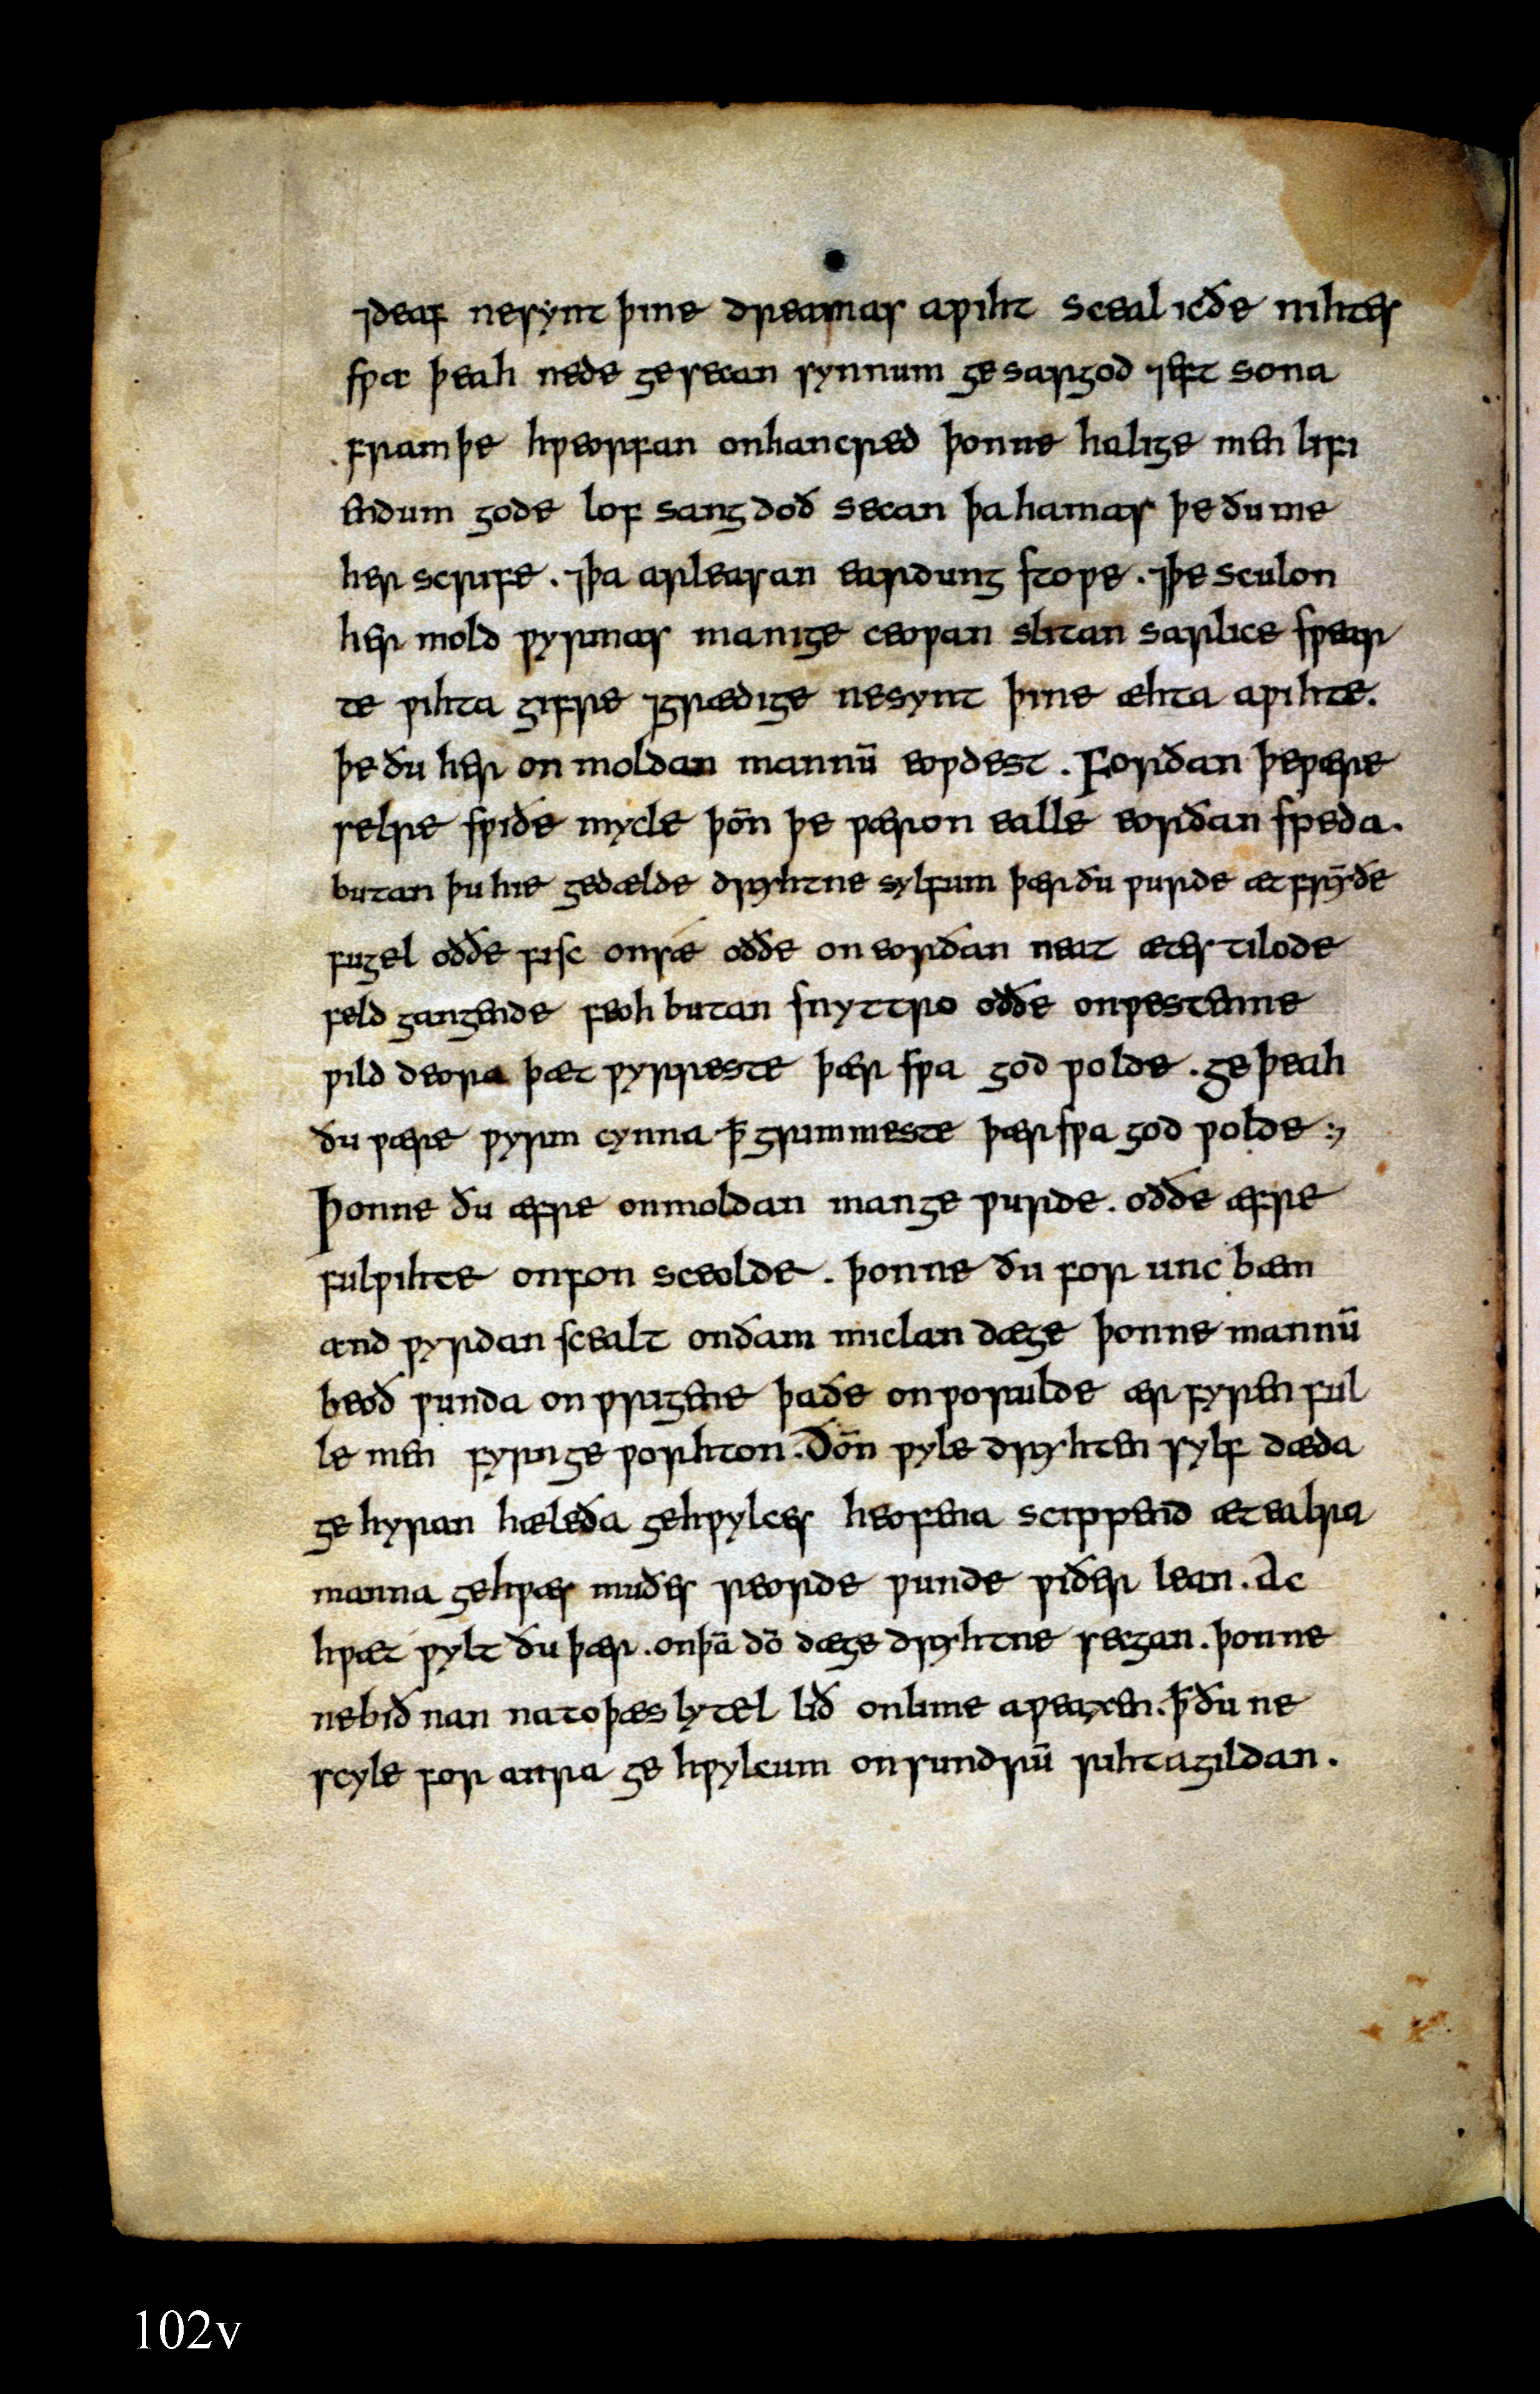 ⁊deaf ne synt þine dreamas aƿiht sceal ic ðe nihtes
sƿa þeah nede gesecan synnum gesargod ⁊eft sona
fram þe hƿeorfan on hancred þonne halige men lifi
endum gode lof sang doð secan þa hamas þe ðu me
her scrife . ⁊þa arleasan eardung stoƿe . ⁊þe sculon
her mold ƿyrmas manige ceoƿan slitan sarlice sƿear
te ƿihta gifre ⁊grædige ne synt þine æhta aƿihte.
þe ðu her on moldan mannū eoƿdest . Forðan þe ƿære
selre sƿiðe mycle þōn þe ƿæron ealle eorðan speda.
butan þu hie gedælde dryhtne sylfum þær ðu ƿurde æt frȳðe
fugel oððe fisc on sǽ oððe on eorðan neat ætes tilode
feld gangende feoh butan snyttro oððe on ƿestenne
ƿild deora þæt ƿyrreste þær sƿa god ƿolde . ge þeah
ðu ƿære ƿyrm cynna ꝥ grimmeste þær sƿa god ƿolde :⁊
Þonne ðu æfre on moldan mange ƿurde . oððe æfre
fulƿihte onfon sceolde . þonne ðu for unc bæm
andƿyrdan scealt on ðam miclan dæge þonne mannū
beoð ƿunda onƿrigene þa ðe on ƿorulde ær fyren ful
le men fyrn geƿorhton . Ðōn ƿyle dryhten sylf dæda
gehyran hæleða gehƿylces heofena scippend æt ealra
manna gehƿæs muðes reorde ƿunde ƿiðer lean . Ac
hƿæt ƿylt ðu þær . on þā dō dæge dryhtne secgan . þonne
ne bið nan na to þæs lytel lið on lime aƿeaxen . ꝥ ðu ne
scyle for anra gehƿylcum onsundrū riht agildan .
102v